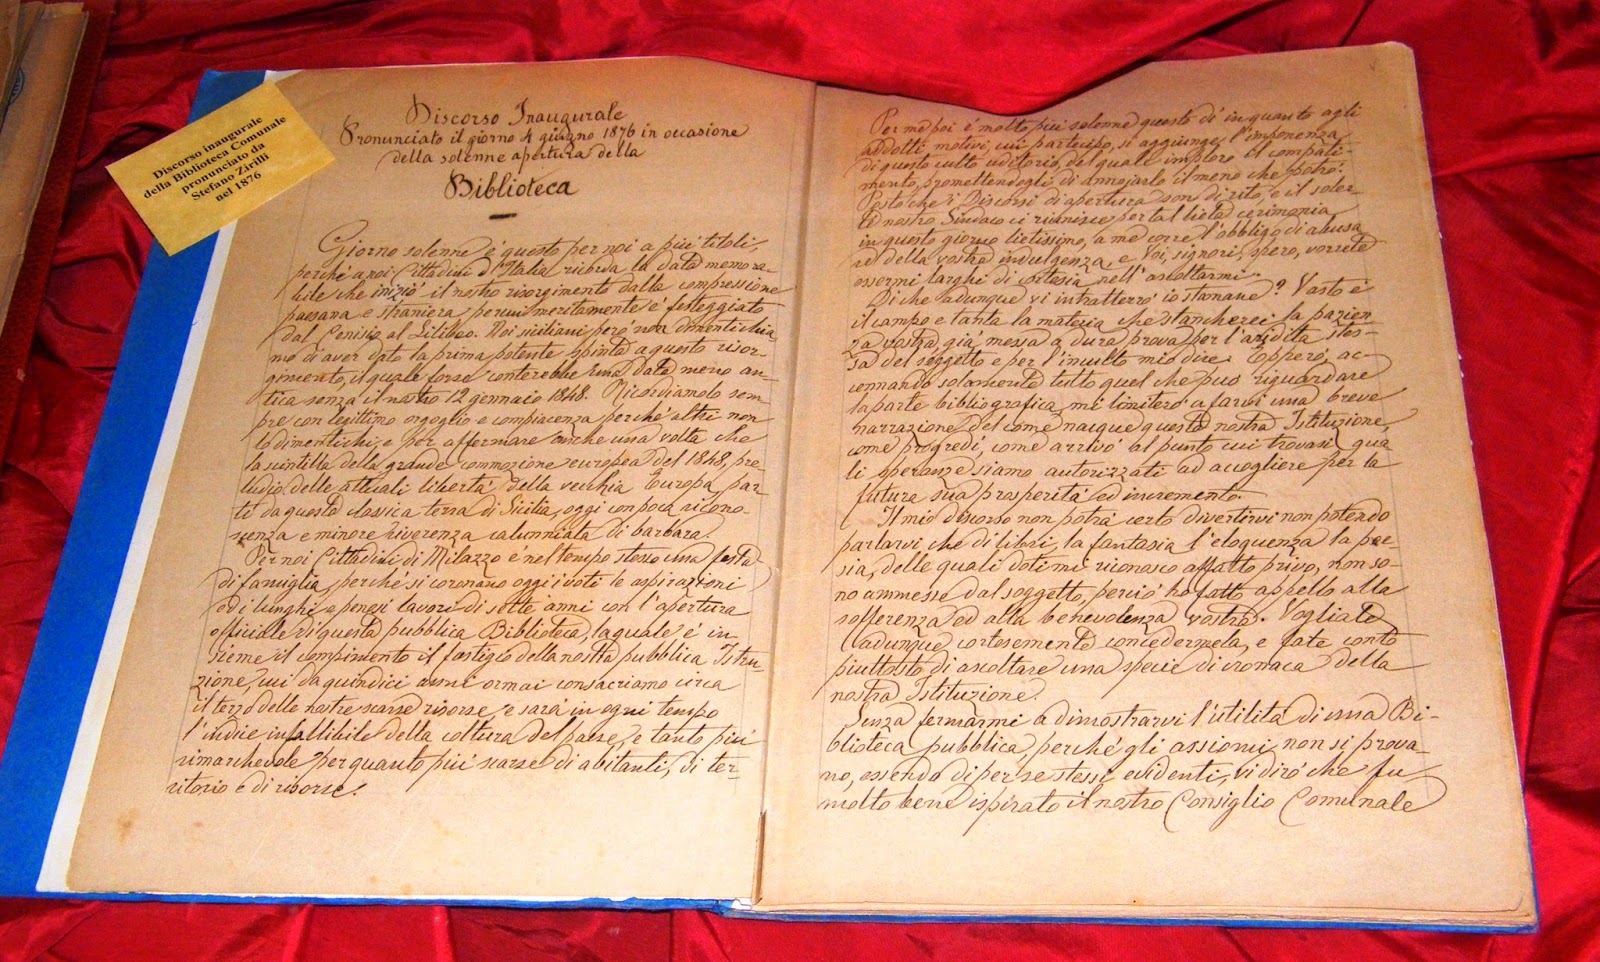 Discorso inaugurale
della Biblioteca Comunale
pronunciato da
Stefano Zirilli
nel 1876
Discorso Inaugurale
Pronunciato il giorno 4 giugno 1876 in occasione
della solenne apertura della
Biblioteca
Giorno solenne è questo per noi a più titoli,
perché a noi Cittadini d'Italia ricorda la data memora-
bile che iniziò il nostro risorgimento dalla compressione
paesana e straniera, percui meritamente è festeggiato
dal Cenisio al Lilibeo. Noi siciliani però non dimentichia
mo di aver dato la prima potente spinta a questo risor-
gimento, il quale forse conterebbe una data meno an-
tica senza il nostro 12 gennaio 1848. Ricordiamolo sem
pre con legittimo orgoglio e compiacenza perché altri non
lo dimentichi, e per affermare anche una volta che
la scintilla della grande commozione europea del 1848, pre-
ludio delle attuali libertà della vecchia Europa, par-
tì da questa classica terra di Sicilia, oggi con poca ricono-
scenza e minore riverenza calunniata di barbara.
Per noi Cittadini di Milazzo è nel tempo stesso una festa
di famiglia, perché si coronano oggi i voti le aspirazioni
ed i lunghi e penosi lavori di sette anni con l'apertura
officiale di questa pubblica Biblioteca, la quale è in
sieme il compimento il fastigio della nostra pubblica Istru
zione, cui da quindici anni ormai consacriamo circa
il terzo delle nostre scarse risorse, e sarà in ogni tempo
l'indice infallibile della coltura del paese, e tanto più
rimarchevole per quanto più scarse di abitanti, di ter-
ritorio e di risorse.
Per me poi è molto più solenne questo dì in quanto agli
addotti motivi, cui partecipo, si aggiunge l'imponenza
di questo culto uditorio, del quale imploro il compati-
mento, promettendogli di annojarlo il meno che potrò.
Posto che i Discorsi di apertura son di rito, e il soler-
te nostro Sindaco ci riunisce per tal lieta cerimonia
in questo giorno lietissimo, a me corre l'obbligo di abusa
re della vostra indulgenza, e Voi, signori, spero, vorrete
essermi larghi di cortesia nell'ascoltarmi.
Di che adunque vi intratterrò io stamane? Vasto è
il campo e tanta la materia che stancherei la pazien
za vostra, già, messa a dura prova per l'aridità stes-
sa del soggetto e per l'inculto mio dire. Epperò, ac-
cennando solamente tutto quel che può riguardare
la parte bibliografica, mi limiterò a farvi una breve
narrazione del come nacque questa nostra Istituzione,
come progredì, come arrivò al punto cui trovasi, qua
li speranze siamo autorizzati ad accogliere per la
futura sua prosperità ed incremento.
Il mio discorso non potrà certo divertirvi non potendo
parlarvi che di libri, la fantasia l'eloquenza la poe-
sia, delle quali doti mi riconosco affatto privo, non so-
no ammesse dal soggetto, perciò ho fatto appello alla
sofferenza ed alla benevolenza vostra. Vogliate
adunque cortesemente concedermela, e fate conto
piuttosto, di ascoltare una specie di cronaca della
nostra Istituzione.
Senza fermarmi a dimostrarvi l'utilità di una Bi-
blioteca pubblica, perché gli assiomi non si prova-
no, essendo di per se stessi evidenti, vi dirò che fu
molto bene ispirato il nostro Consiglio Comunale